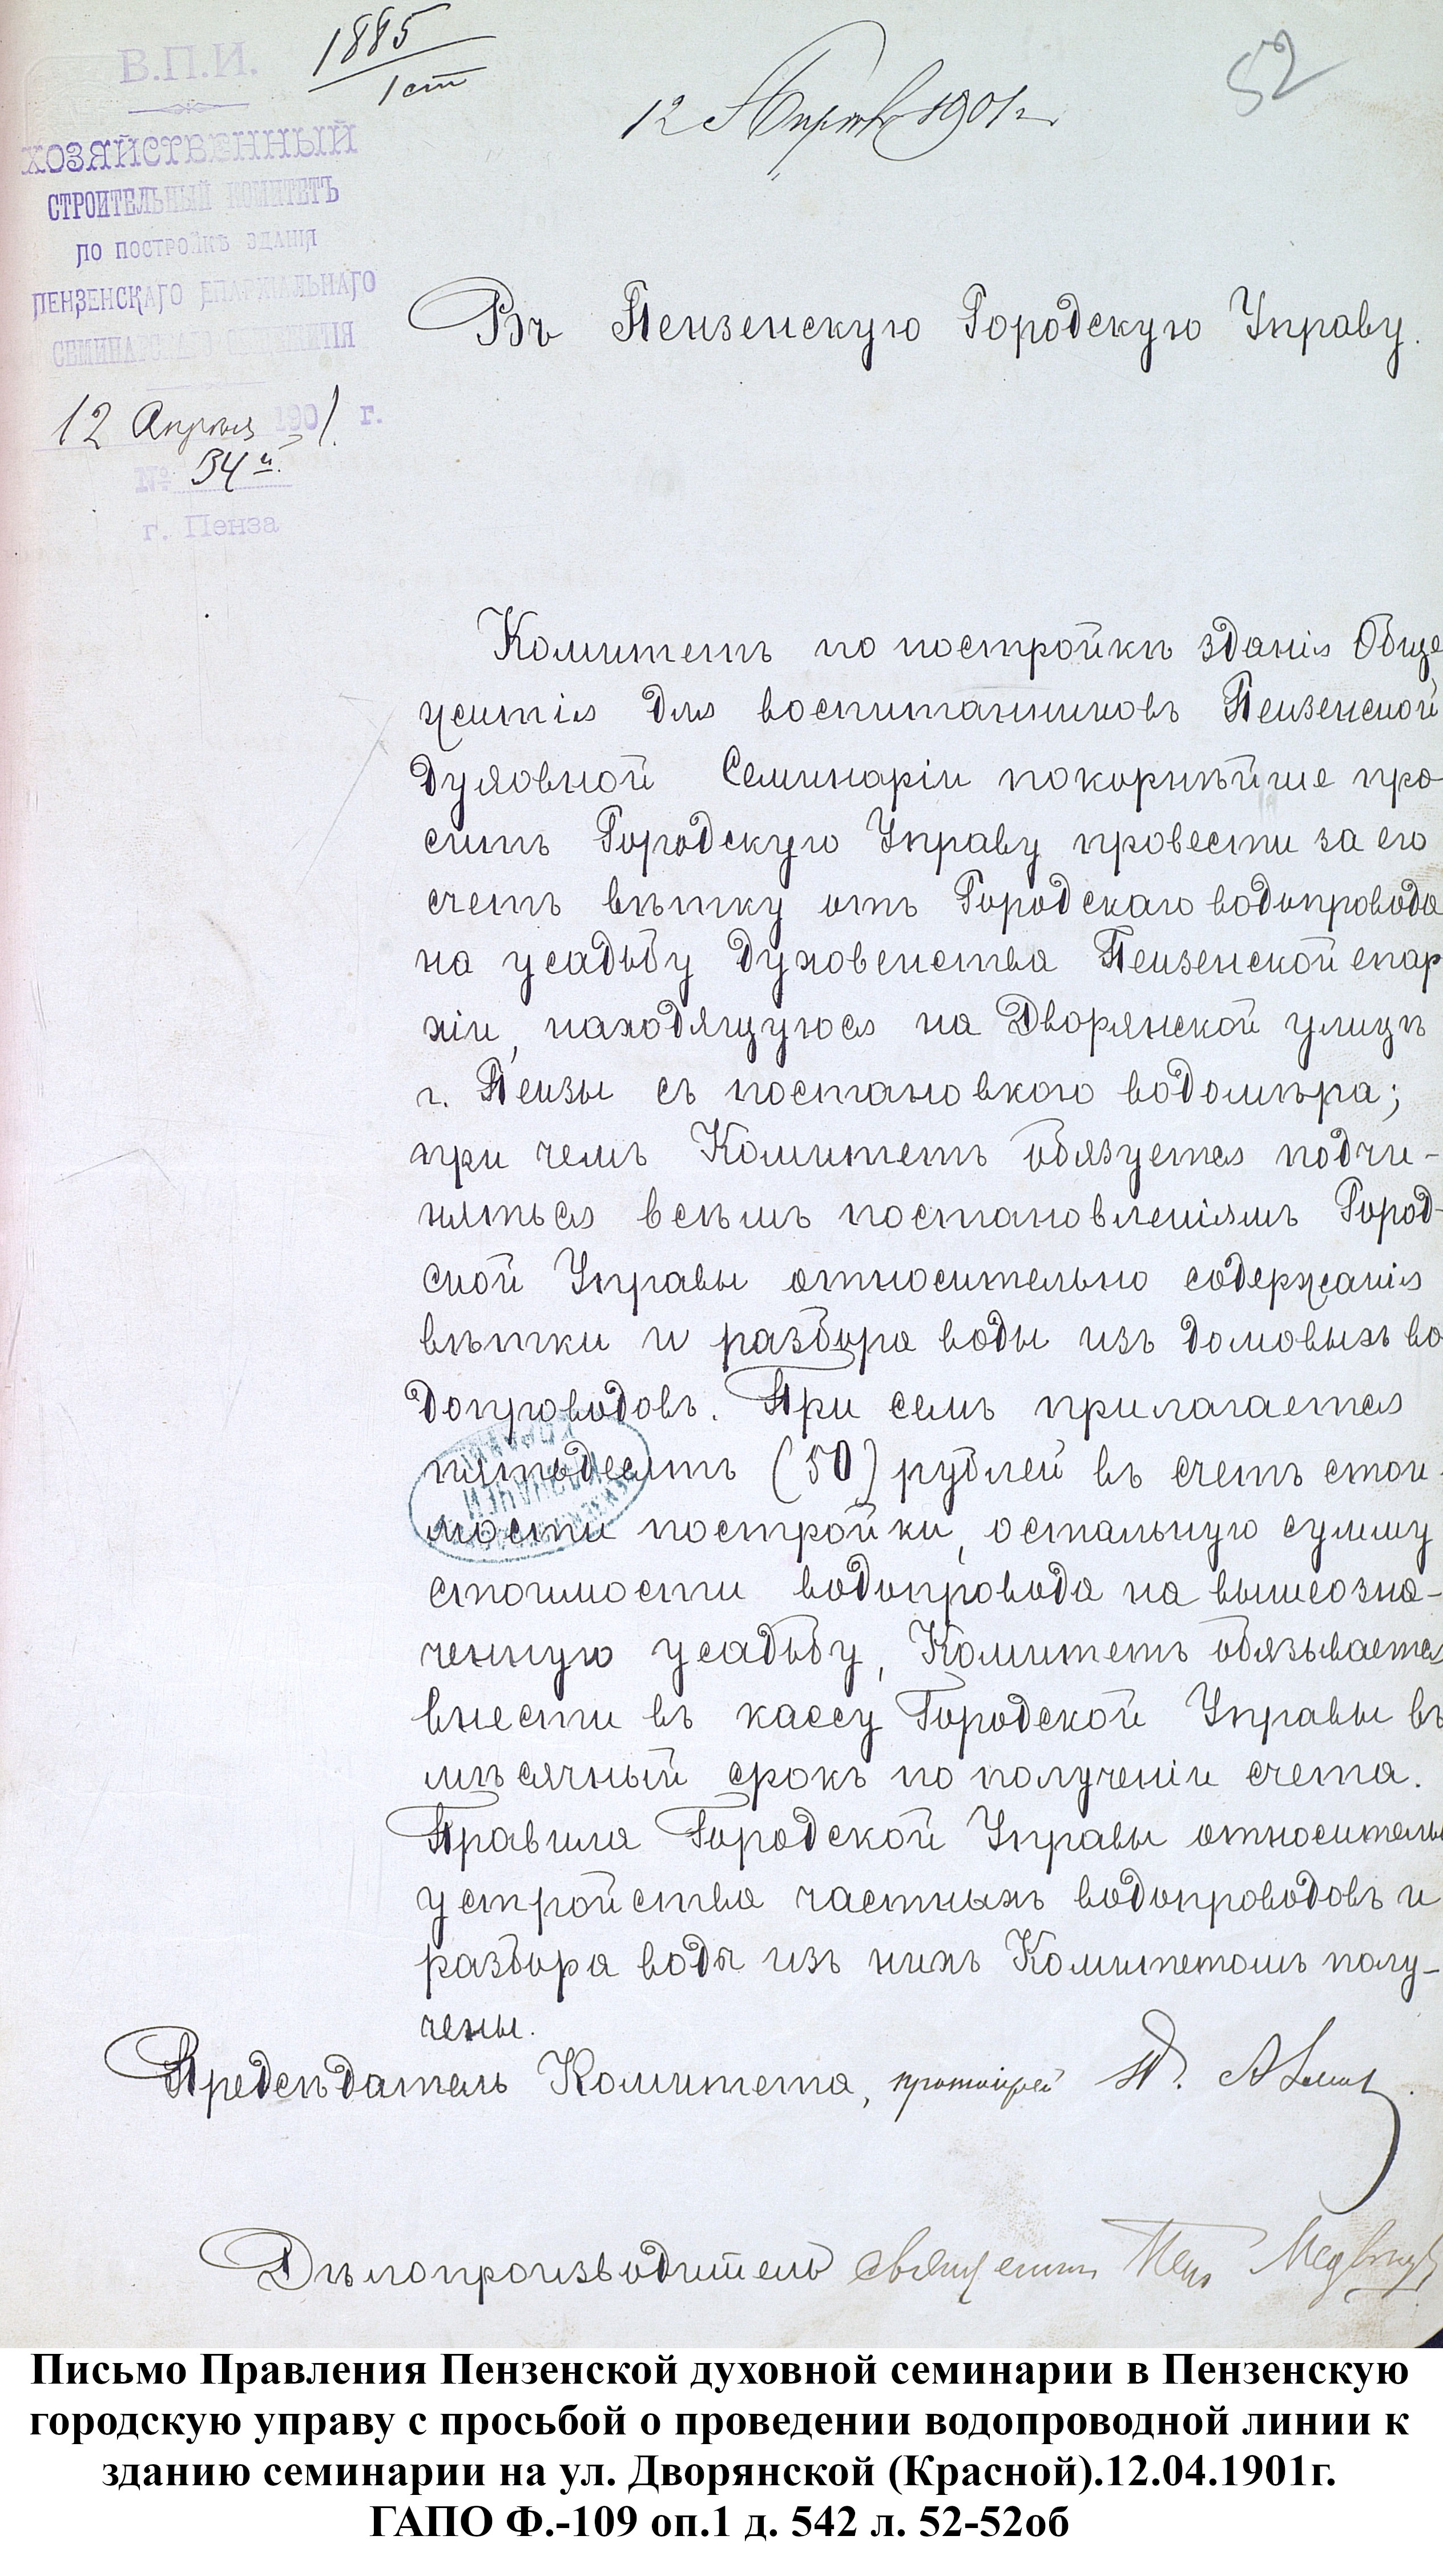 1885
1 ст
52
12 Апрѣля 1901 г.
В.П.И.
ХОЗЯЙСТВЕННЫЙ
СТРОИТЕЛЬНЫЙ КОМИТЕТЪ
ПО ПОСТРОЙКѢ ЗДАНІЯ
ПЕНЗЕНСКАГО ЕПАРХІАЛЬНАГО
СЕМИНАРСКАГО ОБЩЕЖИТІЯ
12 Апрѣля 1901 г.
№ 34й.
г. Пенза
Въ Пензенскую Городскую Управу.
Комитетъ по постройкѣ зданія Обще
житія для воспитанниковъ Пензенской
Духовной Семинаріи покорнѣйше про
ситъ Городскую Управу провести за его
счетъ вѣтку отъ Городскаго водопровода
на усадьбу духовенства Пензенской епар
хіи, находящуюся на Дворянской улицѣ
г. Пензы съ постановкою водомѣра;
при чемъ Комитетъ обязуется подчи-
няться всѣмъ постановленіямъ Город-
ской Управы относительно содержанія
вѣтки и разбора воды изъ домовыхъ во
допроводовъ. При семъ прилагается
пятьдесятъ (50) рублей въ счетъ стои-
мости постройки, остальную сумму
стоимости водопровода на вышеозна-
ченную усадьбу, Комитетъ обязывается
внести въ кассу Городской Управы въ
мѣсячный срокъ по полученіи счета.
Правила Городской Управы относительн
устройства частныхъ водопроводовъ и
разбора воды изъ нихъ Комитетомъ полу-
чены.
Предсѣдатель Комитета, протоіерей П.
Дѣлопроизводитель священник
Письмо Правления Пензенской духовной семинарии в Пензенскую
городскую управу с просьбой о проведении водопроводной линии к
зданию семинарии на ул. Дворянской (Красной).12.04.1901г.
ГАПО Ф.-109 оп.1 д. 542 л. 52-52об